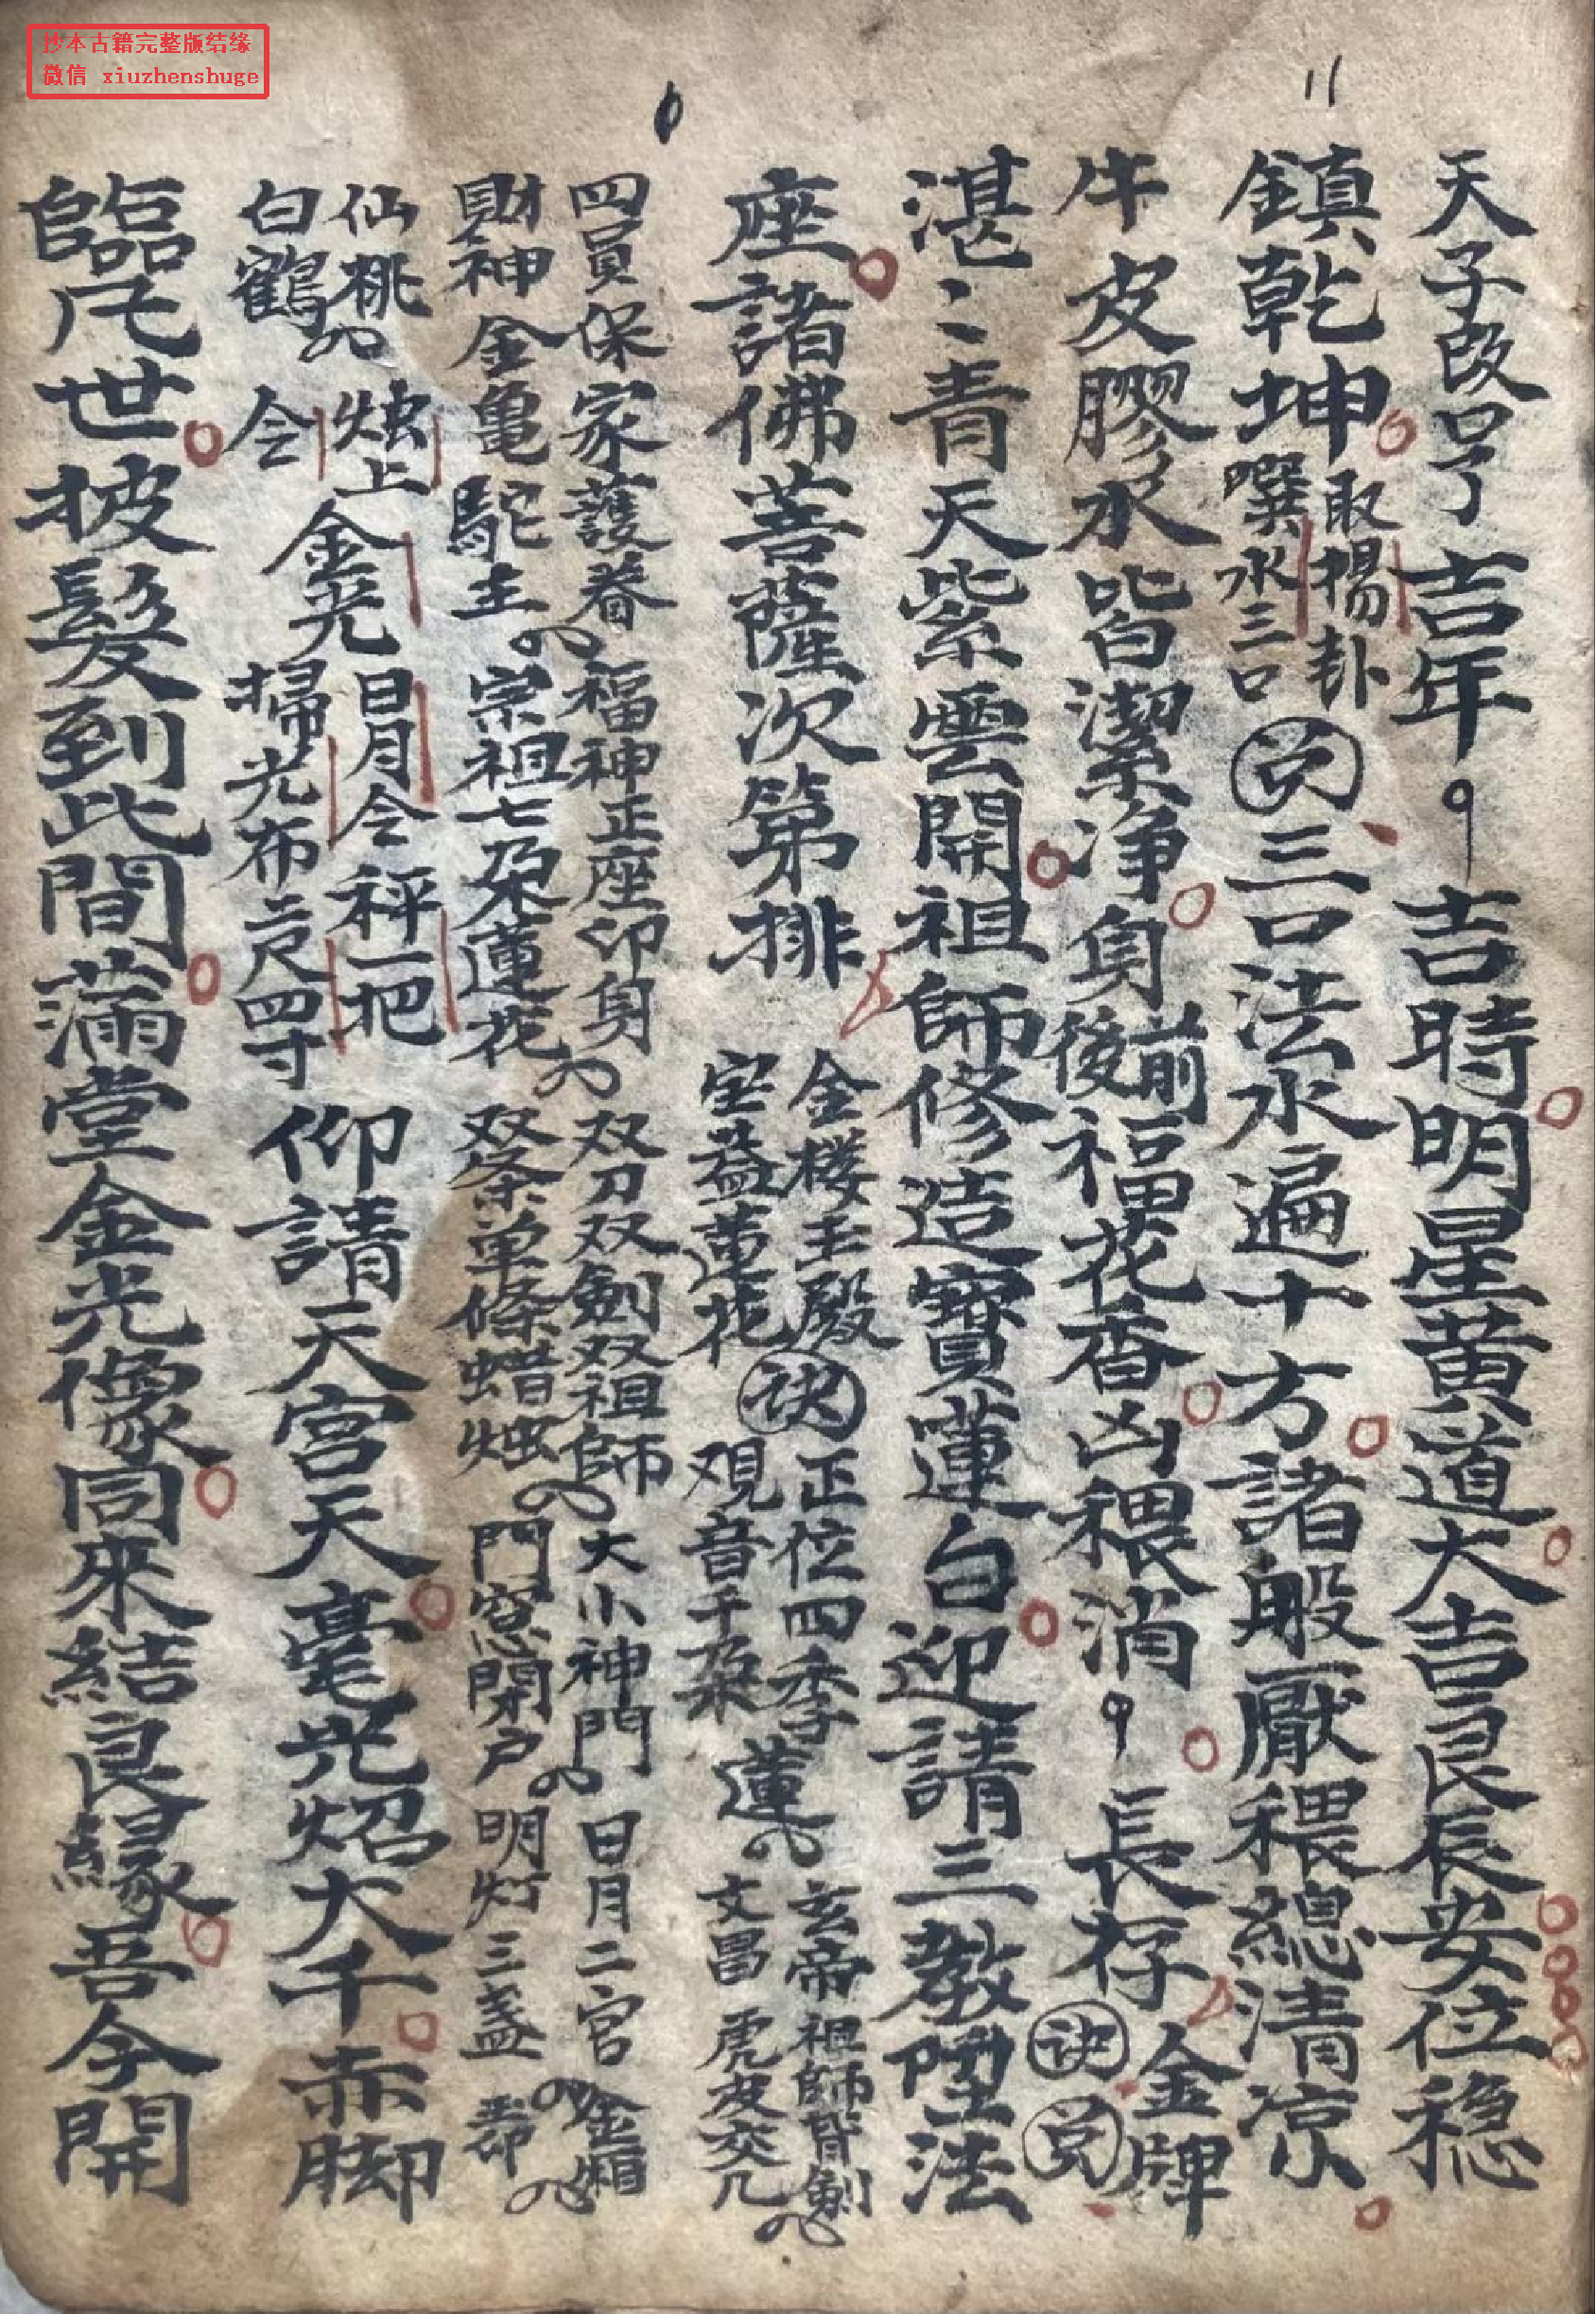 抄本古籍完整版结缘
微信 xiuzhenshuge
11
天子改口了吉年吉時明星黄道大吉良辰安位稳
鎮乾坤
取楊卦
噀水三口
三口法水遍十方諸般厭穢總清凉
牛皮膠水皆潔净身
前
後
福花香凶穢消
長存
金牌
訣
湛〻青天紫雲開祖師修造寶蓮白迎請三教陞法
座諸佛菩薩次第排
金楼玉殿
宝蓋蓮花
訣
正位四季
观音千朶
蓮
玄帝祖師背劍
文昌虎皮交几
四員保家護眷福神正座卯身双刀双劍双祖師大小神門日月二宫金相
財神金亀駝主宗祖七朶蓮花双条单條蜡烛門窓閑户明灯三盏
仙桃
白鶴
烛上
令
金光
日月令秤一把
掃光布二尺四寸
仰請天宫天毫光炤大千赤脚
臨凡世披髮到此間滿堂金光像同來結良緣吾今開